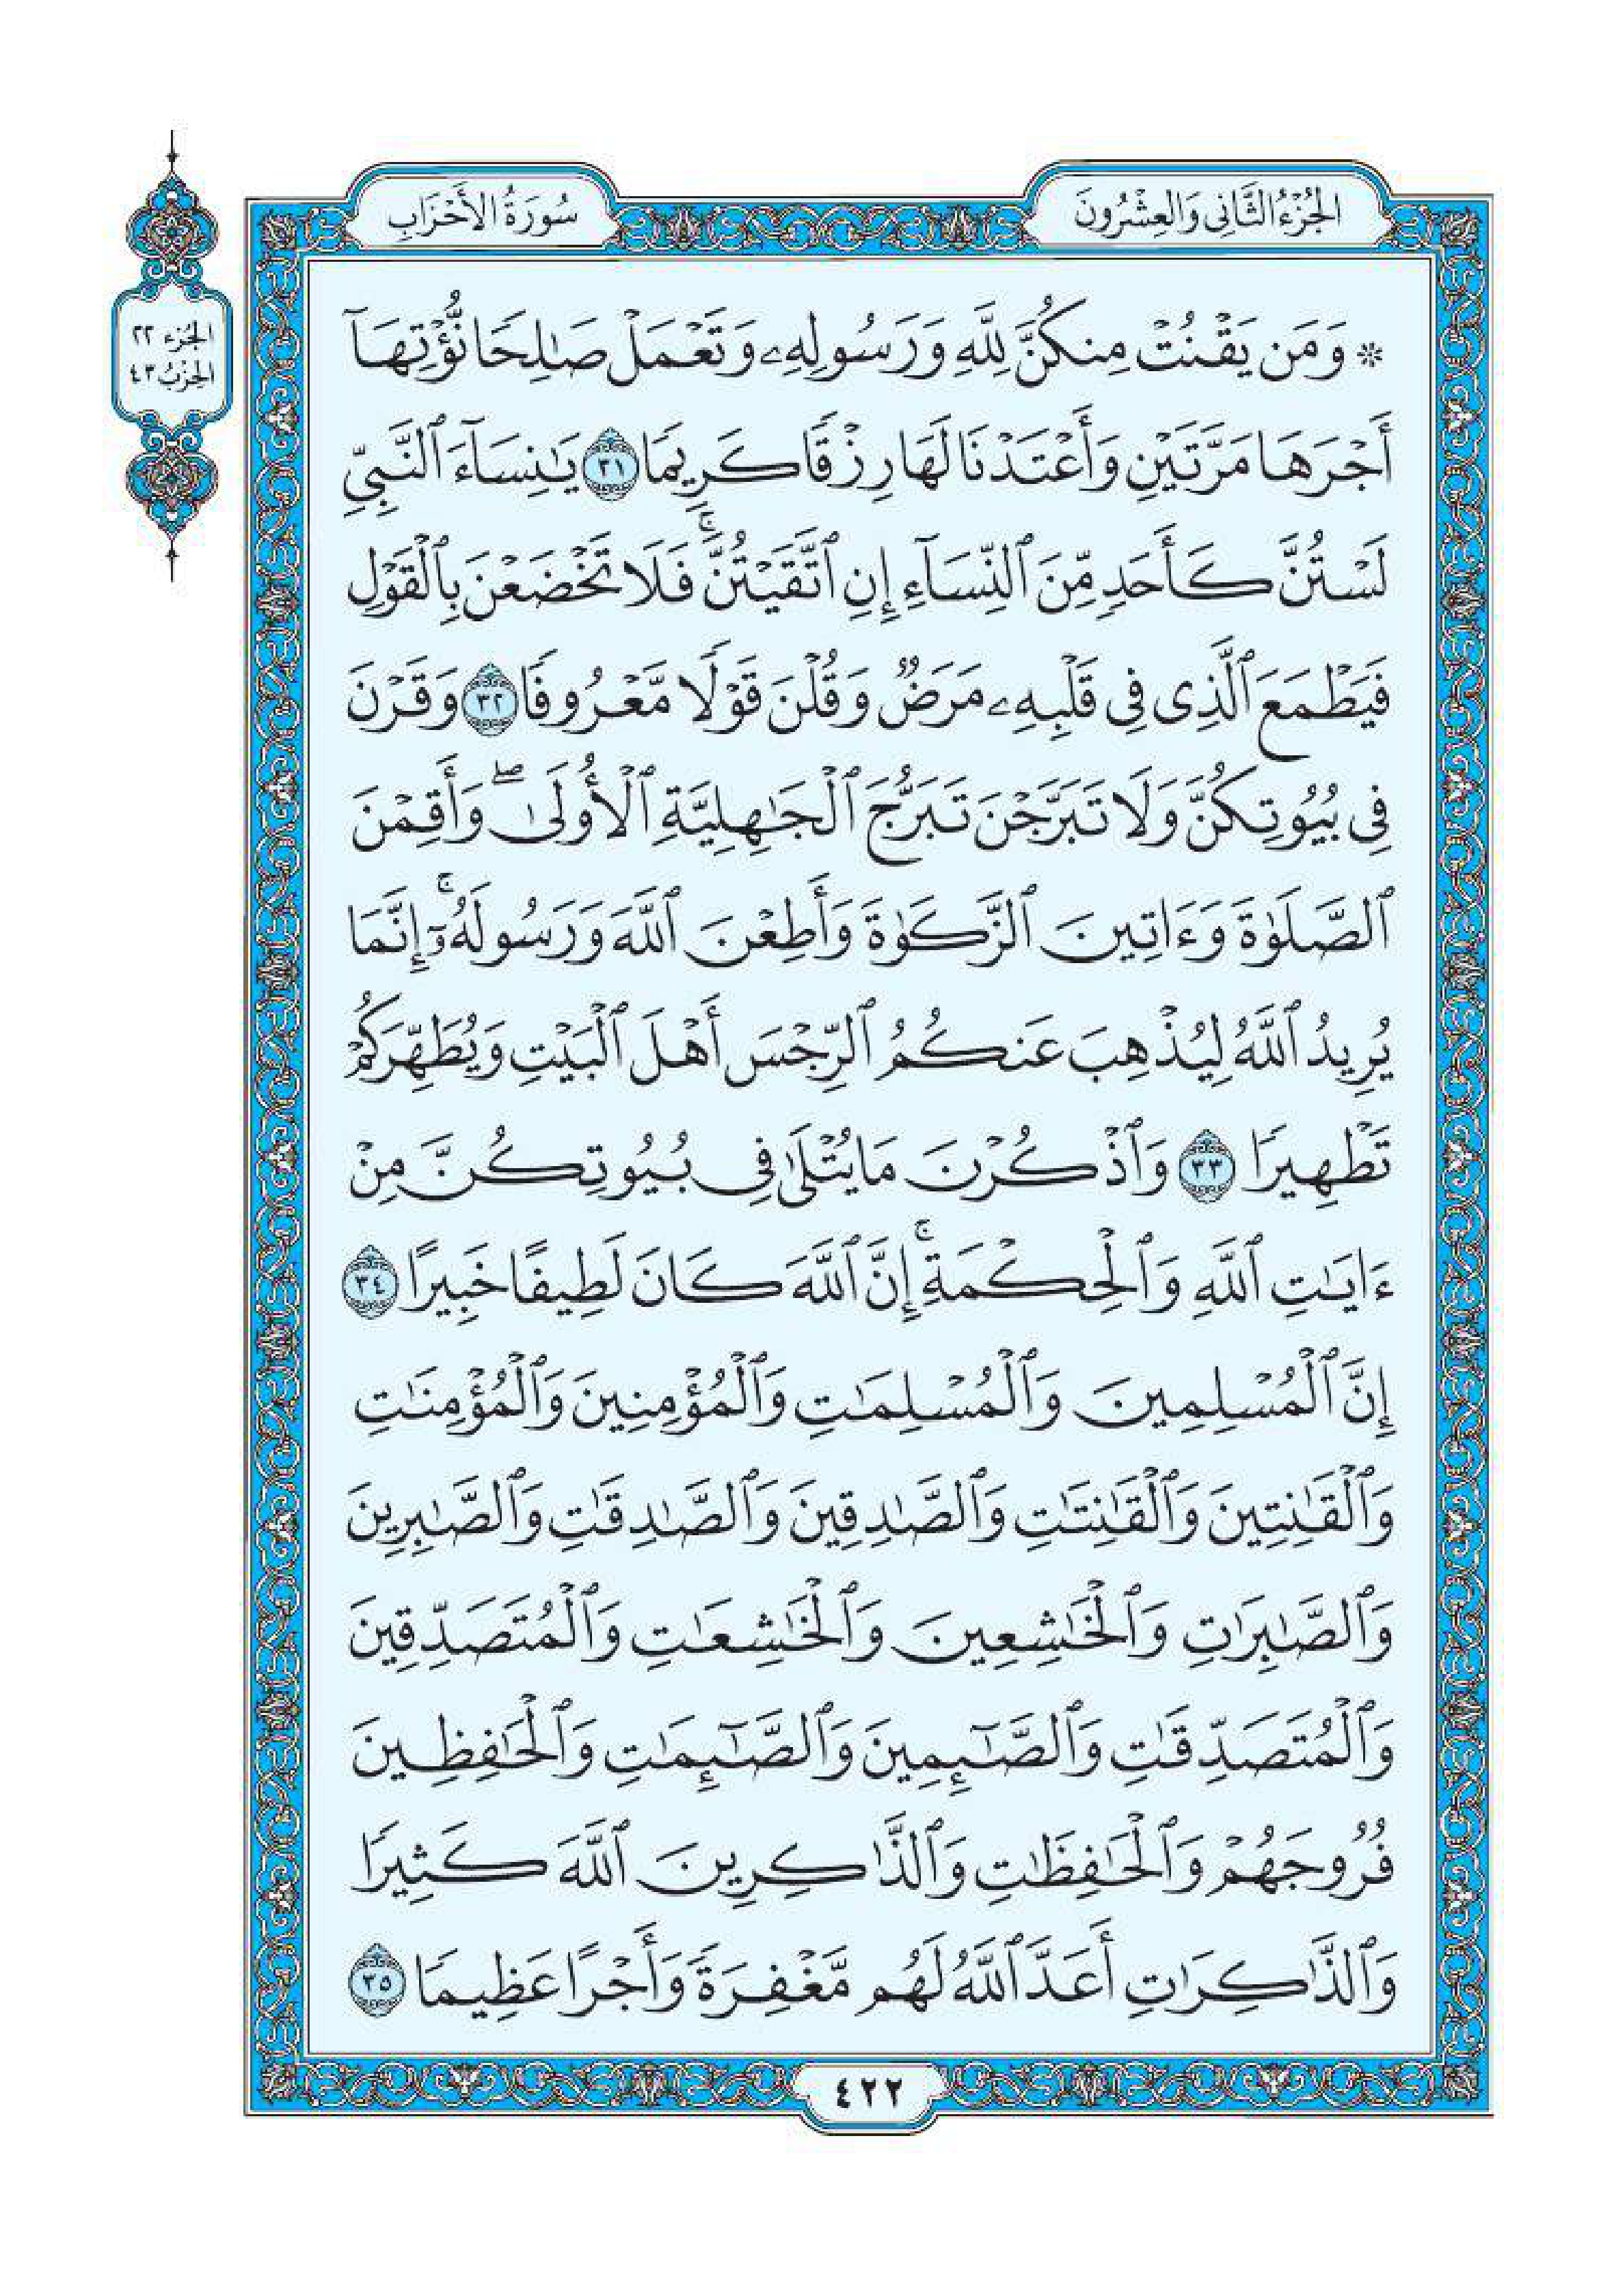 الجُزْءُ الثَّانِي وَالعِشْرُونَ
سُورَةُ الأَحْزَابِ
الجُزء ٢٢
الحِزْبُ ٤٣
۞ وَمَن يَقْنُتْ مِنكُنَّ لِلَّهِ وَرَسُولِهِۦ وَتَعْمَلْ صَٰلِحًا نُّؤْتِهَآ
أَجْرَهَا مَرَّتَيْنِ وَأَعْتَدْنَا لَهَا رِزْقًا كَرِيمًا ٣١ يَٰنِسَآءَ ٱلنَّبِىِّ
لَسْتُنَّ كَأَحَدٍ مِّنَ ٱلنِّسَآءِ إِنِ ٱتَّقَيْتُنَّ ۚ فَلَا تَخْضَعْنَ بِٱلْقَوْلِ
فَيَطْمَعَ ٱلَّذِى فِى قَلْبِهِۦ مَرَضٌ وَقُلْنَ قَوْلًا مَّعْرُوفًا ٣٢ وَقَرْنَ
فِى بُيُوتِكُنَّ وَلَا تَبَرَّجْنَ تَبَرُّجَ ٱلْجَٰهِلِيَّةِ ٱلْأُولَىٰ ۖ وَأَقِمْنَ
ٱلصَّلَوٰةَ وَءَاتِينَ ٱلزَّكَوٰةَ وَأَطِعْنَ ٱللَّهَ وَرَسُولَهُۥٓ ۚ إِنَّمَا
يُرِيدُ ٱللَّهُ لِيُذْهِبَ عَنكُمُ ٱلرِّجْسَ أَهْلَ ٱلْبَيْتِ وَيُطَهِّرَكُمْ
تَطْهِيرًا ٣٣ وَٱذْكُرْنَ مَا يُتْلَىٰ فِى بُيُوتِكُنَّ مِنْ
ءَايَٰتِ ٱللَّهِ وَٱلْحِكْمَةِ ۚ إِنَّ ٱللَّهَ كَانَ لَطِيفًا خَبِيرًا ٣٤
إِنَّ ٱلْمُسْلِمِينَ وَٱلْمُسْلِمَٰتِ وَٱلْمُؤْمِنِينَ وَٱلْمُؤْمِنَٰتِ
وَٱلْقَٰنِتِينَ وَٱلْقَٰنِتَٰتِ وَٱلصَّٰدِقِينَ وَٱلصَّٰدِقَٰتِ وَٱلصَّٰبِرِينَ
وَٱلصَّٰبِرَٰتِ وَٱلْخَٰشِعِينَ وَٱلْخَٰشِعَٰتِ وَٱلْمُتَصَدِّقِينَ
وَٱلْمُتَصَدِّقَٰتِ وَٱلصَّٰٓئِمِينَ وَٱلصَّٰٓئِمَٰتِ وَٱلْحَٰفِظِينَ
فُرُوجَهُمْ وَٱلْحَٰفِظَٰتِ وَٱلذَّٰكِرِينَ ٱللَّهَ كَثِيرًا
وَٱلذَّٰكِرَٰتِ أَعَدَّ ٱللَّهُ لَهُم مَّغْفِرَةً وَأَجْرًا عَظِيمًا ٣٥
٤٢٢